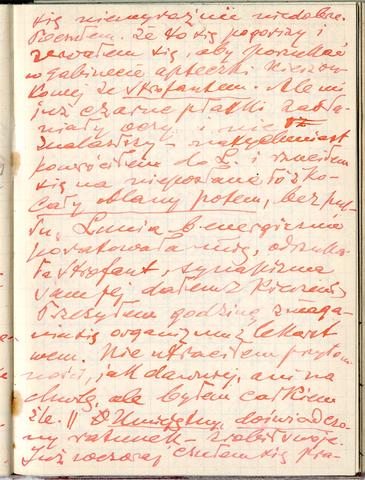 się niewyraźnie niedobrze.
Poczułem, że to się pogorszy i
zerwałem się, aby poszukać
w gabinecie apteczki kieszon-
kowej ze strofantem. Ale mi
już czarne płatki zasła-
niały oczy i nic
znalazłszy – natychmiast
powróciłem do Ł. i rzuciłem
się na nieposłane łóżko –
cały oblany potem, bez pul-
su. Lunia b. energicznie
poratowała mnie, odszuka-
ła strofant, synapizma
sam jej dałem z kieszeni
Przeżyłem godzinę zmaga-
nia się organizmu z lekarst
wem. Nie utraciłem przytom
ności, jak dawniej, ani na
chwilę, ale byłem całkiem
źle. || Umiejętny, doświadczo-
ny ratunek – zrobił swoje.
Już wczoraj czułem się